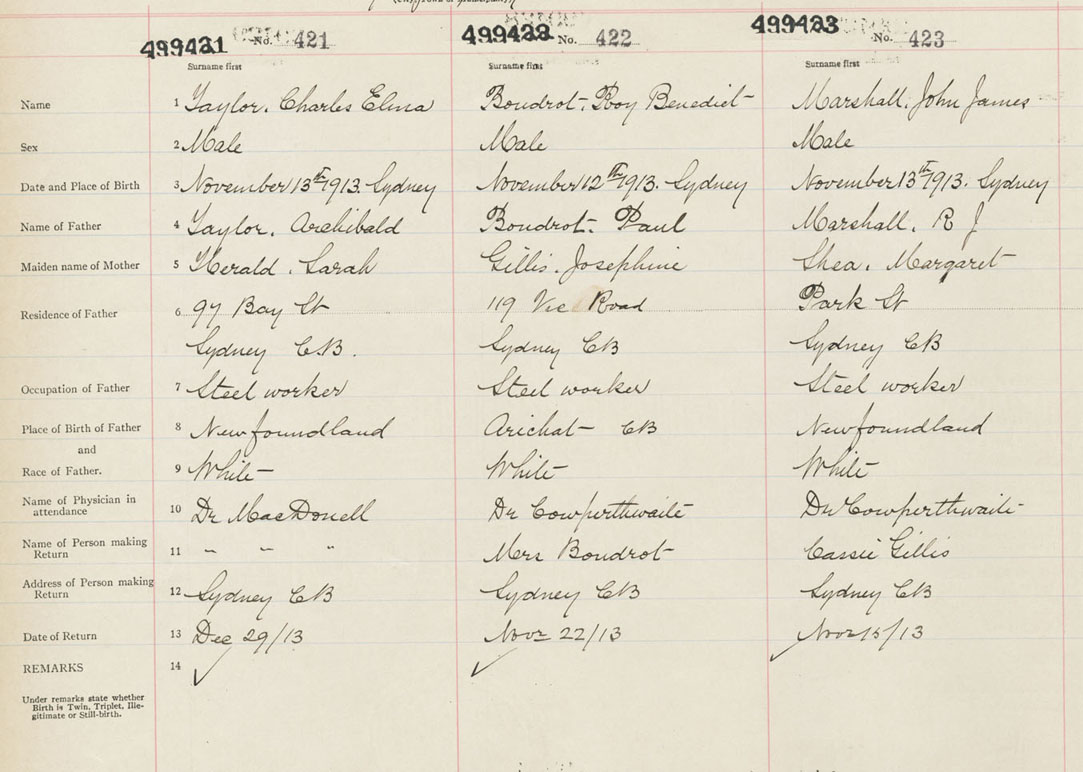 499421 No. 421 499422 No. 422 499423 No. 423
Surname first Surname first Surname first
Name 1 Taylor. Charles Elma Boudrot. Roy Benedict Marshall. John James
Sex 2 Male Male Male
Date and Place of Birth 3 November 13th 1913. Sydney November 12th 1913. Sydney November 13th 1913. Sydney
Name of Father 4 Taylor. Archibald Boudrot. Paul Marshall. R J
Maiden name of Mother 5 Herald. Sarah Gillis. Josephine Shea. Margaret
Residence of Father 6 97 Bay St 119 Vic Road Park St
Sydney C.B. Sydney CB Sydney CB
Occupation of Father 7 Steel worker Steel worker Steel worker
Place of Birth of Father 8 Newfoundland Arichat CB Newfoundland
and
Race of Father. 9 White White White
Name of Physician in
attendance 10 Dr MacDonell Dr Cowperthwaite Dr Cowperthwaite
Name of Person making
Return 11 " " " Mrs Boudrot Cassie Gillis
Address of Person making
Return 12 Sydney CB Sydney CB Sydney CB
Date of Return 13 Dec 29/13 Novr 22/13 Novr 15/13
REMARKS 14
Under remarks state whether
Birth is Twin, Triplet, Ille-
gitimate or Still-birth.